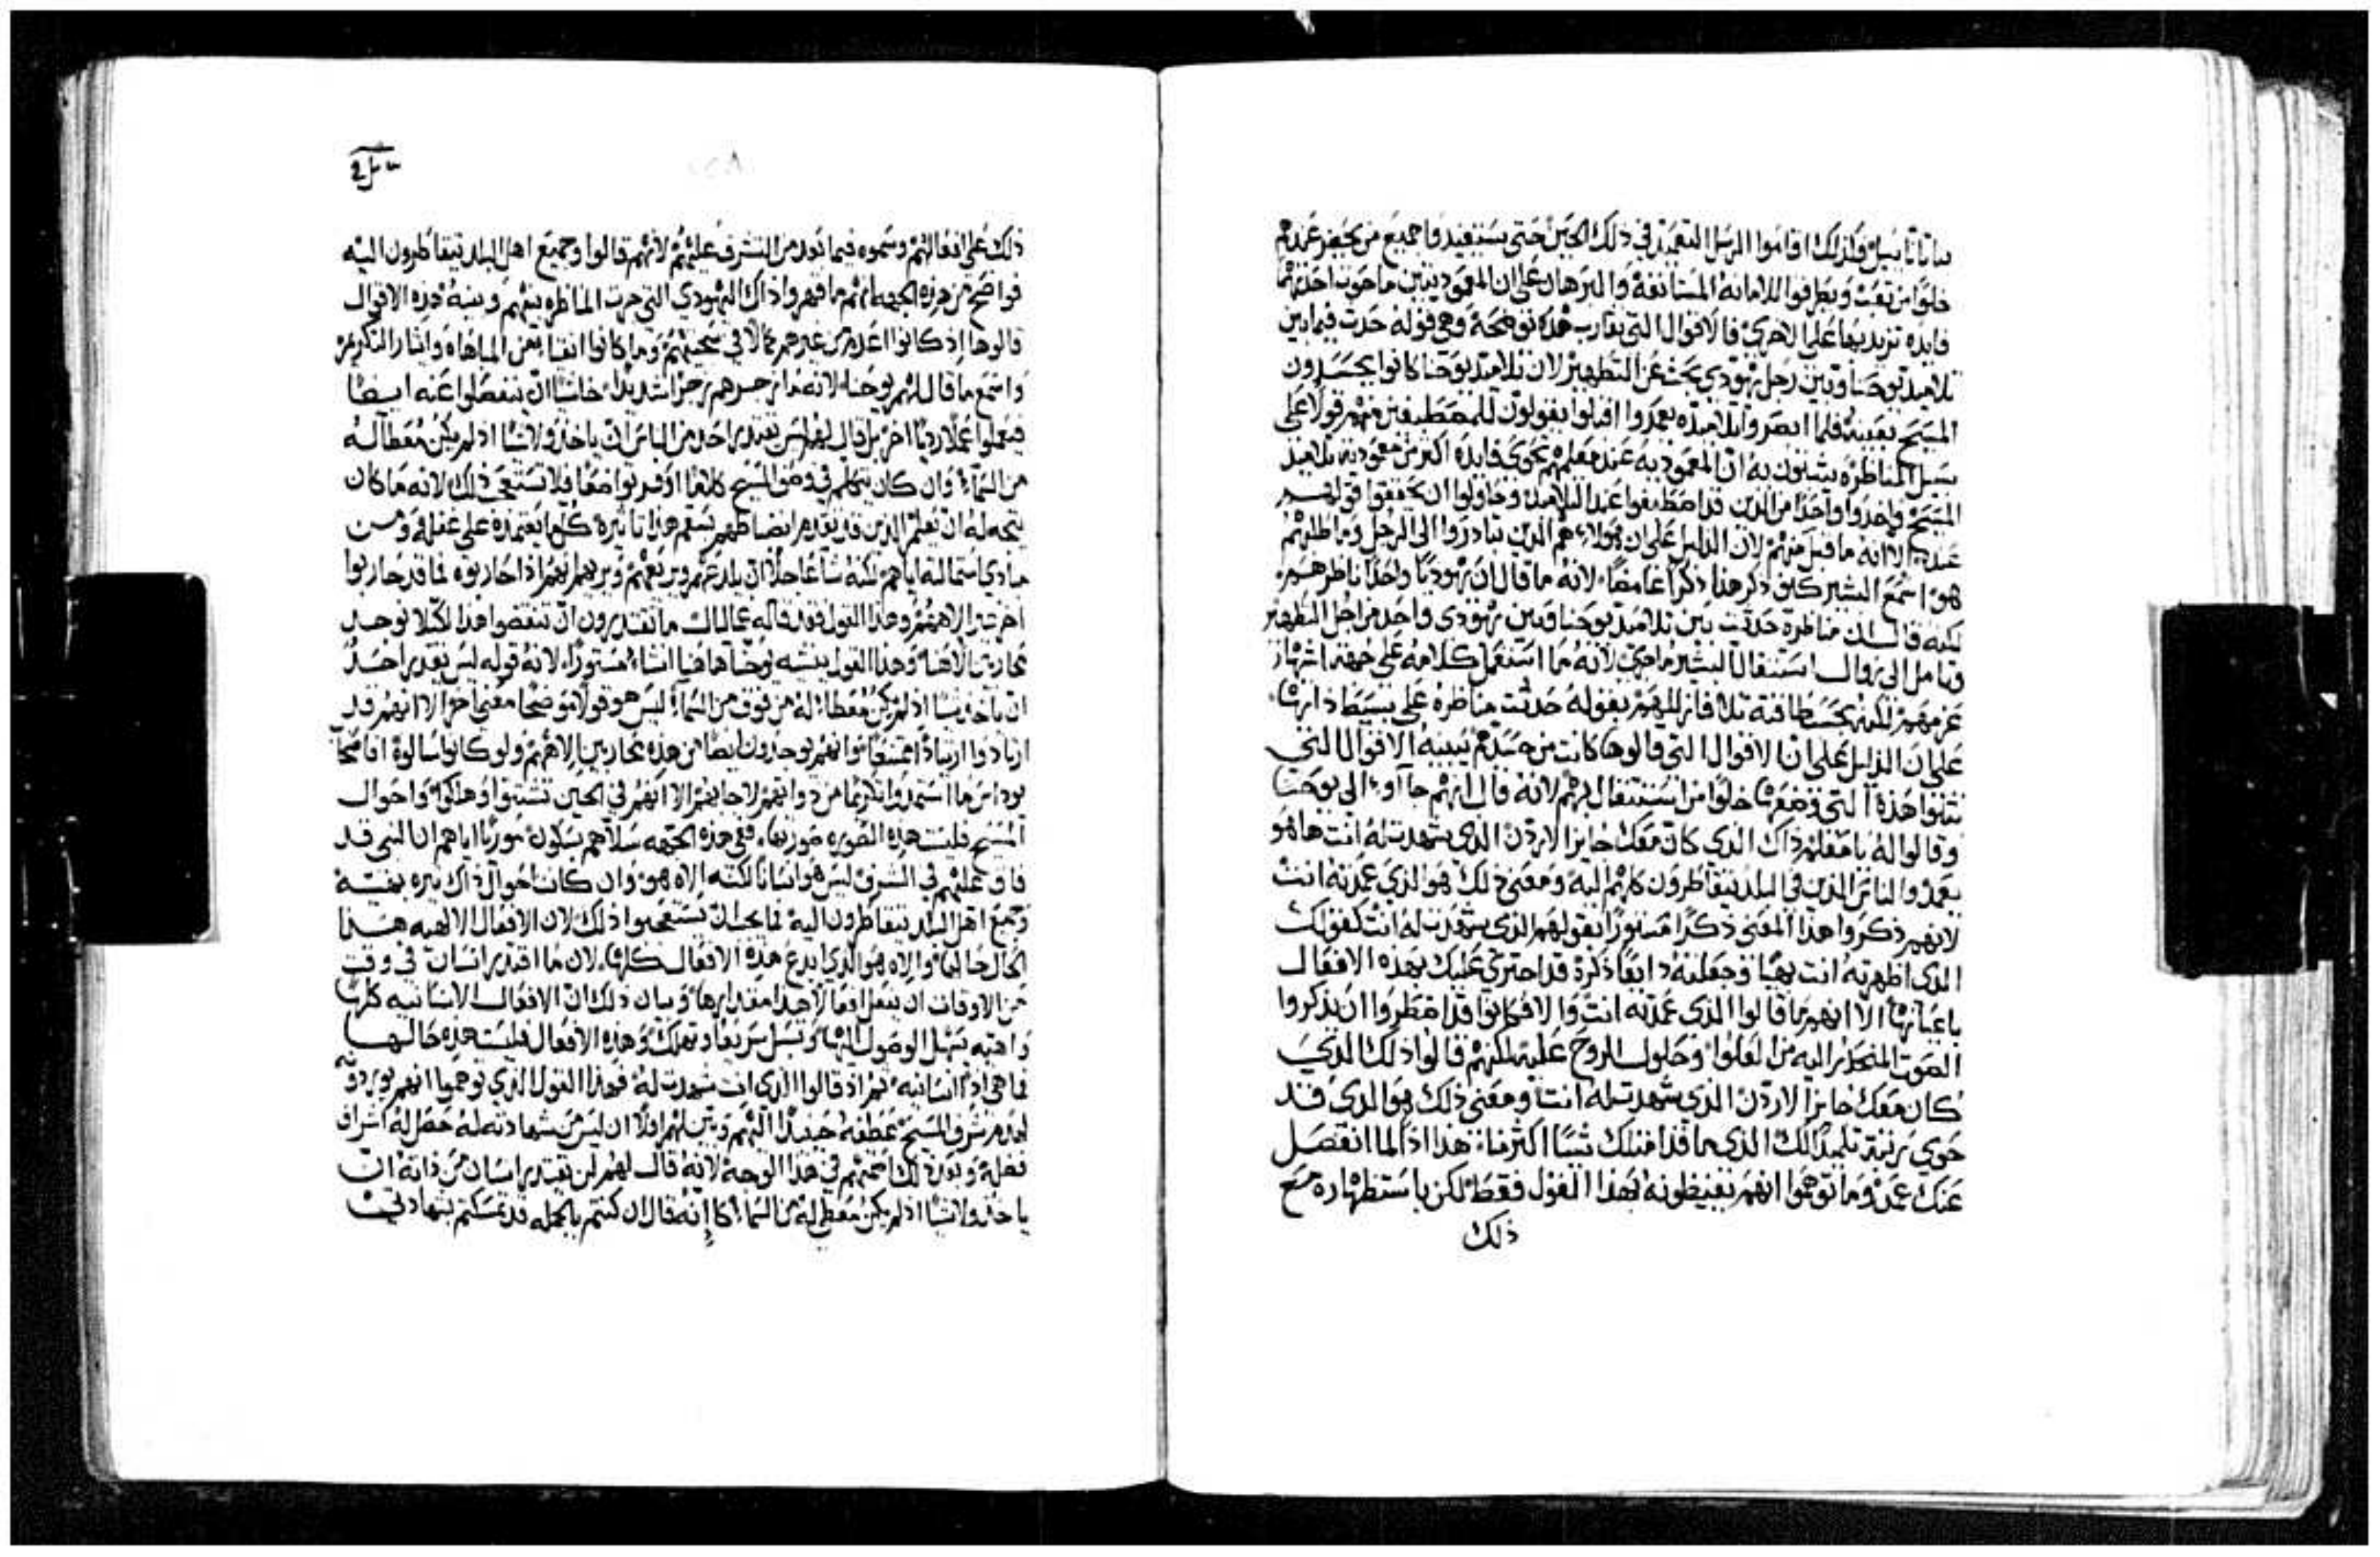 فلذلك اقاموا الرسل التعميد في ذلك الحين حتى يستفيدوا جميع من يحضر عندهم
خلوا من تعب ويطرقوا للامانه المستانفة والبرهان على ان المعموديتين ما حوت احدتهما
فايده تزيد بها على الاخرى فالاقوال التي تقارب هذه توضحة وهي قوله حدث فيما بين
تلاميذ يوحنا وبين رجل يهودي بحث عن التطهير لان تلاميذ يوحنا كانوا يحسدون
المسيح بعينه فلما ابصروا تلاميذه يعمدوا اقبلوا يقولون للمصطبغين منهم قولا على
سبيل المناظره يثبتون به ان المعموديه عند معلمهم تحوي فايده اكثر من معمودية تلاميذ
المسيح واخذوا واحدا من الذين قد اصطبغوا عند التلاميذ وحاولوا ان يحققوا قولهم
عنده الا انه ما قبل منهم لان الدليل على ان هولاء هم الذين تبادروا الى الرجل وما طلبهم
هو اسمع البشير كيف ذكر هذا ذكرا غامضا لانه ما قال ان يهوديا واحدا ناظرهم
لكنه قال ان مناظرة حدثت بين تلاميذ يوحنا وبين يهودي واحد من اجل التطهير
وتامل الي زوال استثقال البشير ما جرى لانه ما استعمل كلامه على جهة اشهار
عزمهم لكنه بحسب طاقته تلافا زللهم بقوله حدثت مناظره على بسيط ذاتها
على ان الدليل على ان الاقوال التي قالوها كانت من حسدهم تبينه الاقوال التي
تتلوا هذه التي وضعها خلوا من استثقال لهم لانه قال انهم جاآوا الى يوحنا
وقالوا له يا معلم ذاك الذي كان معك جايز الاردن الذي شهدت له انت ها هو
يعمد والناس الذين في البلد يتقاطرون كلهم اليه ومعنى ذلك هو الذي عمدته انت
لانهم ذكروا هذا المعنى ذكرا مستورا بقولهم الذي شهدت له انت كقولك
الذي اظهرته انت بهيا وجعلته ذايعا ذكره قد اجترى عليك بهذه الافعال
باعيانها الا انهم ما قالوا الذي عمدته انت والا فكانوا قد اضطروا ان يذكروا
الصوت المنحدر اليه من العلو وحلول الروح عليه لكنهم قالوا ذلك الذي
كان معك جايز الاردن الذي شهدت له انت ومعنى ذلك هو الذي قد
حوى رتبة تلميذ لك الذي ما قد امتلك شيا اكثر منا هذا اذا لما انفصل
عنك عمد وما توهموا انهم يغيظونه بهذا القول فقط لكن باستظهاره مع
ذلك
ذلك على افعالهم وسموه فيما تورد من التشرف عليهم لانهم قالوا وجميع اهل البلد يتقاطرون اليه
فواضح من هذه الجهه انهم ما قهروا ذاك اليهودي التي جرت المناظره بينهم وبينه وهذه الاقوال
قالوها اذ كانوا اعدم من غيرهم كمالا في سجيتهم وما كانوا انقيا من المباهاه وايثار التكرمه
واسمع ما قال لهم يوحنا لانه ما زجرهم زجرا شديدا خاشيا ان ينفصلوا عنه ايضا
فيعملوا عملا رديا اخر بل قال لهم ليس يقتدر احد من الناس ان ياخذ ولا شيا اذ لم يكن معطا له
من السماء وان كان يتكلم في وصف المسيح كلاما اوفر تواضعا فلا تستعجب ذلك لانه ما كان
يتجه له ان يعلم الذين
مبادي استمالته اياهم لكنه شاء عاجلا ان يلدغهم ويريعهم ويريهم انهم اذا حاربوه فما قد حاربوا
اخر غير الاههم وهذا القول فقد قاله غمالياك ما تقتدرون ان تنقضوا هذا لكيلا توجد
محاربين الاها وهذا القول يثبته يوحنا هاهنا اثباتا مستورا لانه قوله ليس يقدر احد
ان ياخذ شيا اذ لم يكن معطا له من فوق من السماء ليس هو قولا موضحا معنى اخر الا انهم قد
ارتادوا ارتيادا ممتنعا وانهم يوجدون ايضا من هذه محاربين الاههم ولو كانوا سالوه افما
يوداس ما استمدوا تكريما من ذواتهم لاجابهم الا انهم في الحين تشتتوا وهلكوا واحوال
المسيح فليست هذه الصوره صورتها ففي هذه الجهه سلاهم بسكون موريا اياهم ان الذي قد
فاق عليهم في الشرف ليس هو انسانا لكنه الاه هو وان كانت احوال ذاك نيره بهيه
وجميع اهل البلد يتقاطرون اليه فما يجب ان تستعجبوا ذلك لان الافعال الالهيه هذا
الحال حالها والاه هو الذي ابدع هذه الافعال كلها لان ما اقتدر انسان في وقت
من الاوقات ان يفعل افعالا هذا مقدارها وبيان ذلك ان الافعال الانسانيه كلها
واهيه يسهل الوصول اليها وتسيل سريعا وتهلك وهذه الافعال فليست هذه حالها
فما هي اذا انسانيه ثم اذ قالوا الذي انت شهدت له فهذا القول الذي توهموا انهم يوردونه
لهدم شرف المسيح عطفه حينئذ اليهم وبين لهم اولا ان ليس من شهادته له حصل له اشراق
فعله وبعد ذلك اصمتهم في هذا الوجه لانه قال لهم لن يقتدر انسان من ذاته ان
ياخذ ولا شيا اذ لم يكن معطى له من السماء كما انه قال ان كنتم بالجمله قد تمسكتم بشهادتي